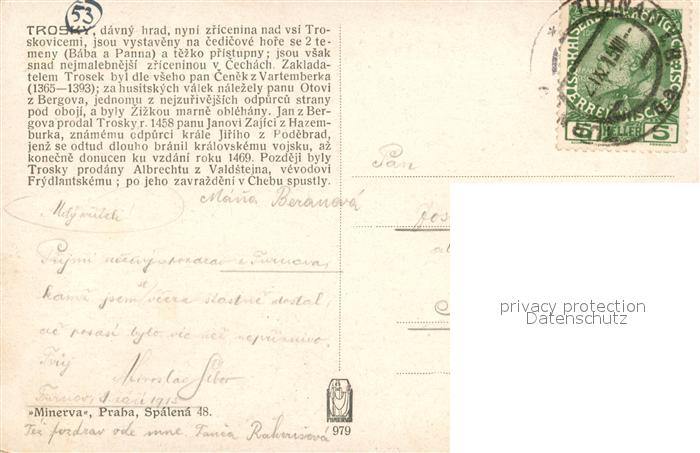 53
TROSKY, dávný hrad, nyní zřícenina nad vsí Tro-
skovicemi, jsou vystavěny na čedičové hoře se 2 te-
meny (Bába a Panna) a těžko přístupny; jsou však
snad nejmalebnější zříceninou v Čechách. Zaklada-
telem Trosek byl dle všeho pan Čeněk z Vartemberka
(1365—1393); za husitských válek náležely panu Otovi
z Bergova, jednomu z nejzuřivějších odpůrců strany
pod obojí, a byly Žižkou marně obléhány. Jan z Ber-
gova prodal Trosky r. 1458 panu Janovi Zajíci z Hazem-
burka, známému odpůrci krále Jiřího z Poděbrad,
jenž se odtud dlouho bránil královskému vojsku, až
konečně donucen ku vzdání roku 1469. Později byly
Trosky prodány Albrechtu z Valdštejna, vévodovi
Frýdlantskému; po jeho zavraždění v Chebu spustly.
Máňa Beranová
Milý příteli!
Přijmi pozdrav z Turnova,
kamž jsem se včera šťastně dostal,
ač počasí bylo víc než nepříznivo.
Tvůj
Miroslav
Turnov, září 1915
»Minerva«, Praha, Spálená 48.
Též pozdrav ode mne.
979
Pan
5 HELLER 5
privacy protection
Datenschutz